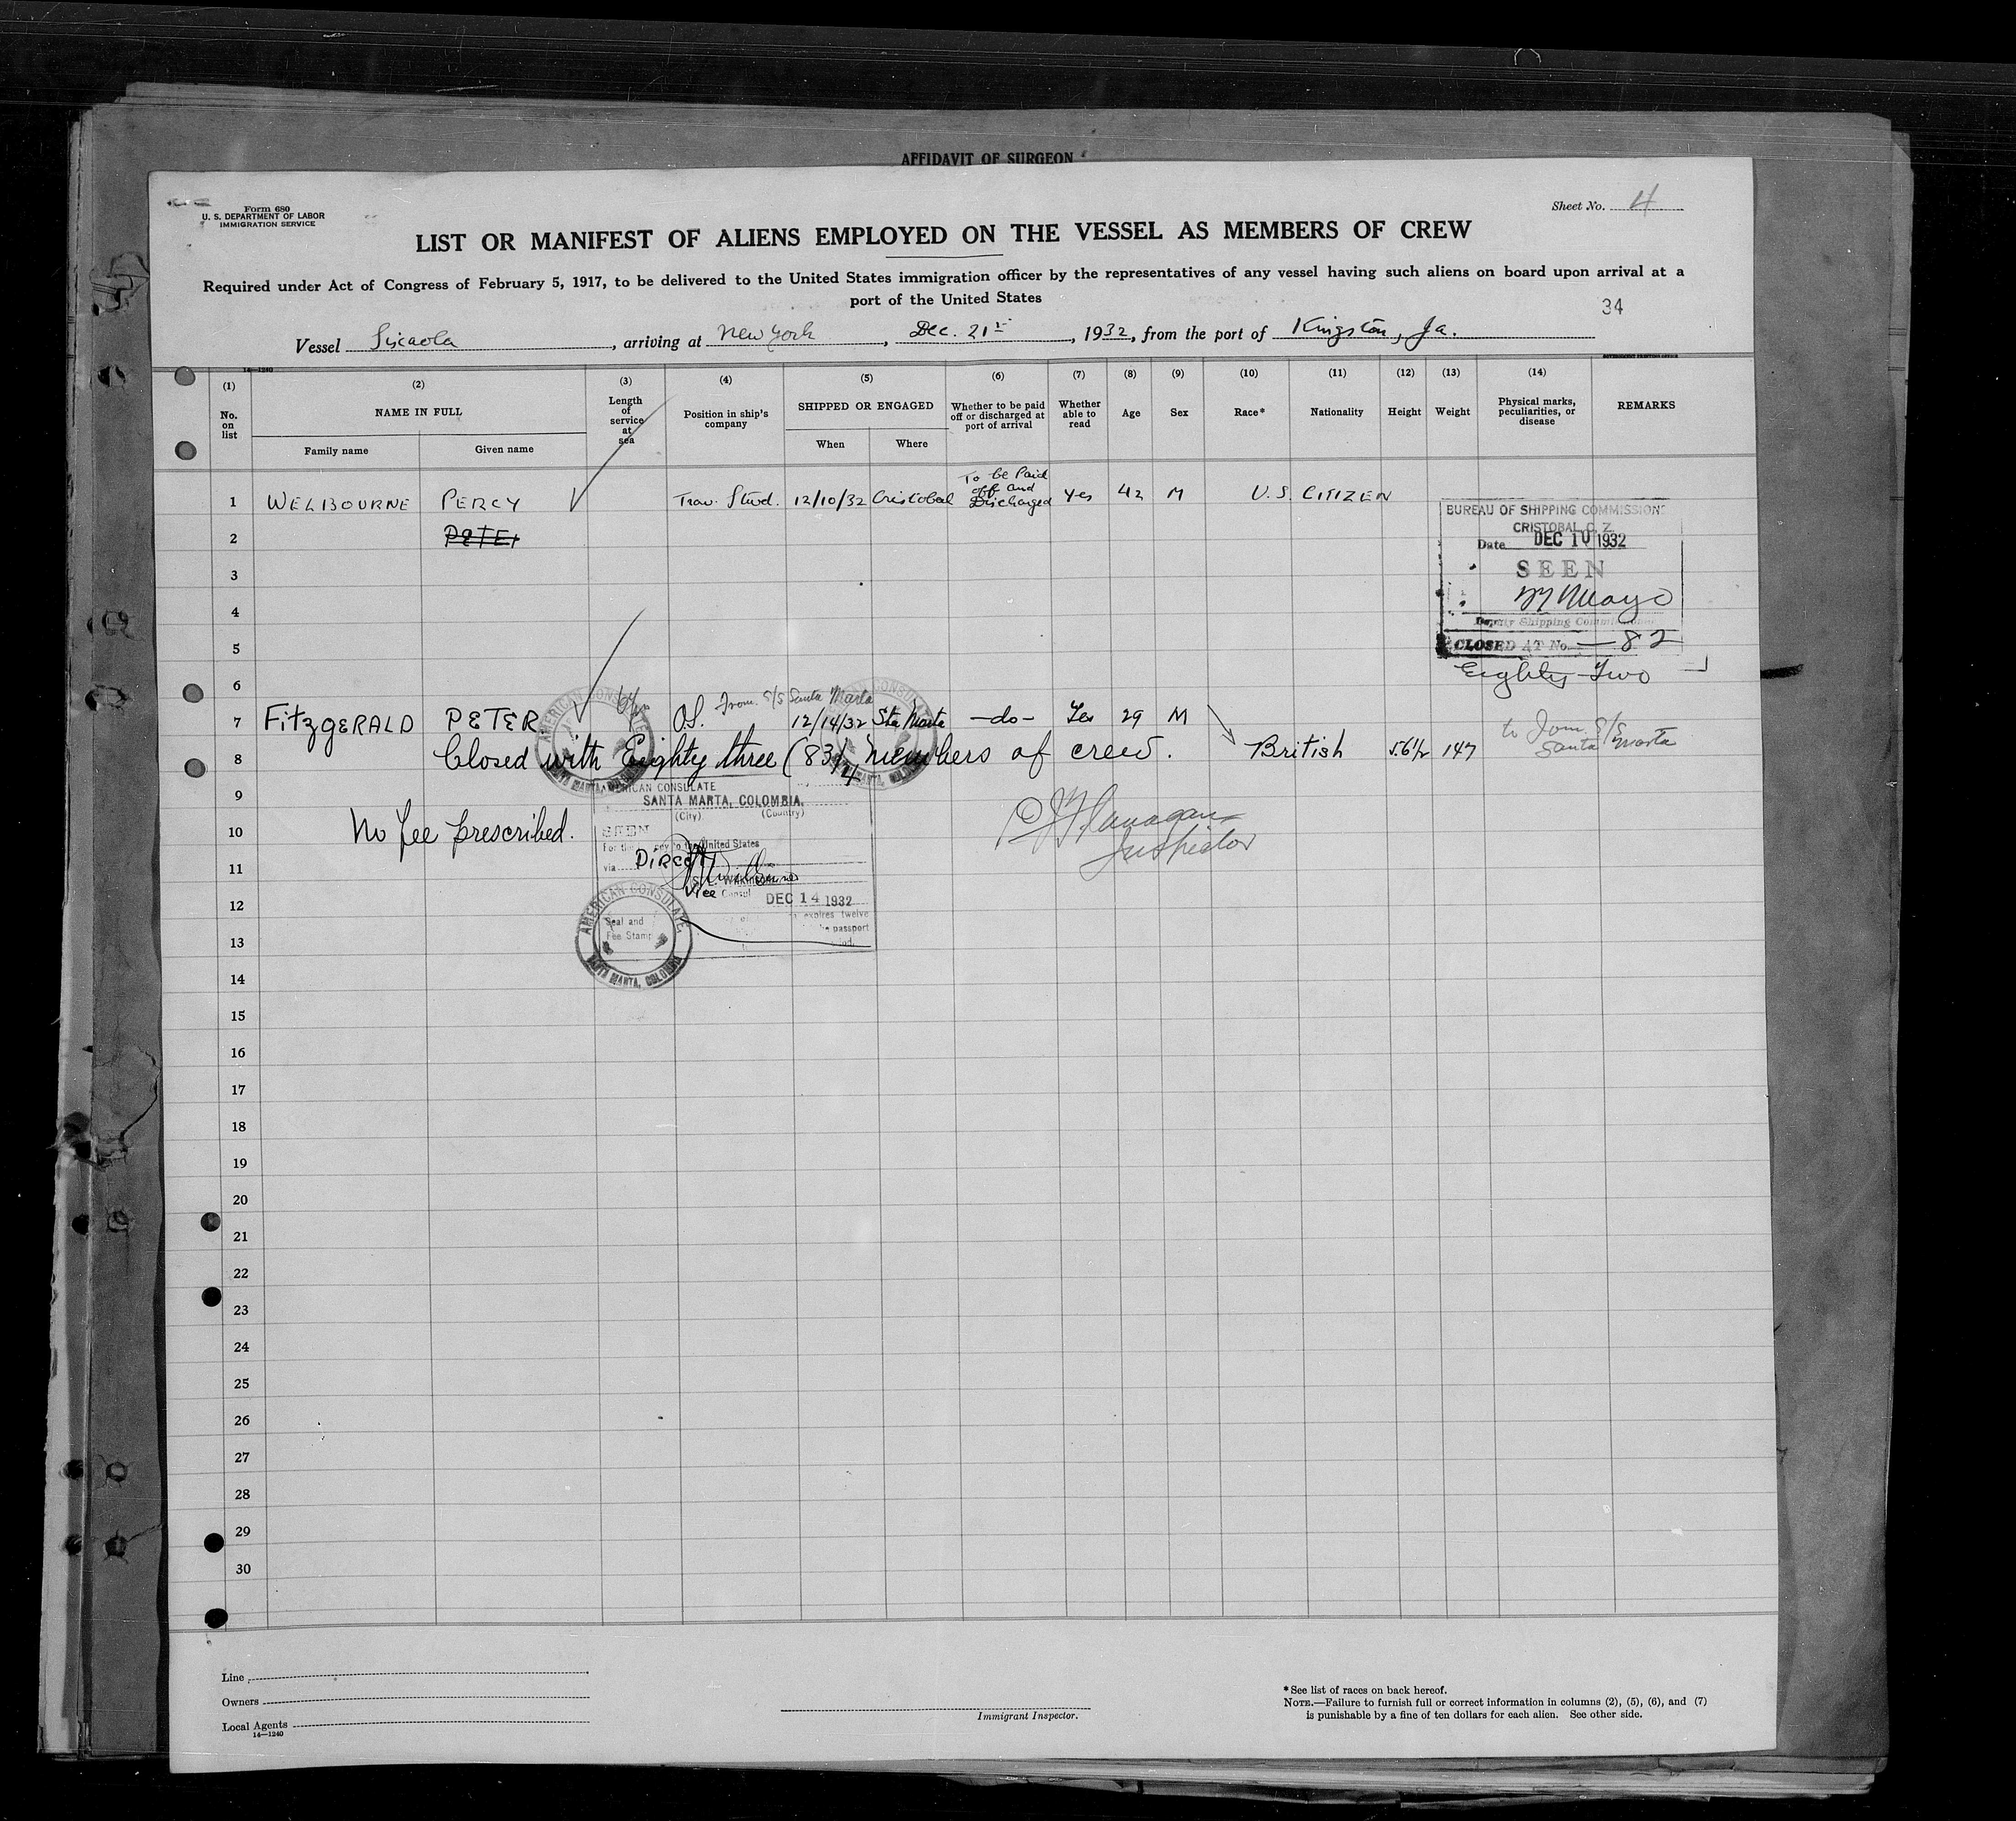 AFFIDAVIT OF SURGEON
Form 680
U. S. DEPARTMENT OF LABOR
IMMIGRATION SERVICE
Sheet No. 4
LIST OR MANIFEST OF ALIENS EMPLOYED ON THE VESSEL AS MEMBERS OF CREW
Required under Act of Congress of February 5, 1917, to be delivered to the United States immigration officer by the representatives of any vessel having such aliens on board upon arrival at a
port of the United States
34
Vessel Sixaola, arriving at New York, Dec. 21st, 1932, from the port of Kingston, Ja.
14—1240
GOVERNMENT PRINTING OFFICE
(1) (2) (3) (4) (5) (6) (7) (8) (9) (10) (11) (12) (13) (14)
No. on list
NAME IN FULL
Family name Given name
Length of service at sea
Position in ship's company
SHIPPED OR ENGAGED
When Where
Whether to be paid off or discharged at port of arrival
Whether able to read
Age Sex Race* Nationality Height Weight
Physical marks, peculiarities, or disease
REMARKS
1 WELBOURNE PERCY Trav. Stwd. 12/10/32 Cristobal To be Paid off and Discharged Yes 42 M U.S. CITIZEN
BUREAU OF SHIPPING COMMISSIONE
CRISTOBAL C. Z.
2 PETER
Date DEC 10 1932
3
SEEN
4
Deputy Shipping Commissioner
5
CLOSED AT No. — 82
Eighty-Two
6
From S/S Santa Marta
7 FitzGERALD PETER O.S. 12/14/32 Sta Marta —do— Yes 29 M
to Join S/S
Santa Marta
8 Closed with Eighty three (83) members of crew. British 5.6½ 147
AMERICAN CONSULATE
SANTA MARTA, COLOMBIA
AMERICAN CONSULATE
SANTA MARTA, COLOMBIA
9
AMERICAN CONSULATE
SANTA MARTA, COLOMBIA.
(City) (Country)
10 No fee prescribed.
SEEN
For the journey to the United States
11
via DIRECT
Flanagan
Inspector
Vice Consul
DEC 14 1932
12
expires twelve
passport
13
AMERICAN CONSULATE,
Seal and
Fee Stamp
SANTA MARTA, COLOMBIA
14
15
16
17
18
19
20
21
22
23
24
25
26
27
28
29
30
Line
Owners
Local Agents
14—1240
Immigrant Inspector.
*See list of races on back hereof.
NOTE.—Failure to furnish full or correct information in columns (2), (5), (6), and (7)
is punishable by a fine of ten dollars for each alien. See other side.